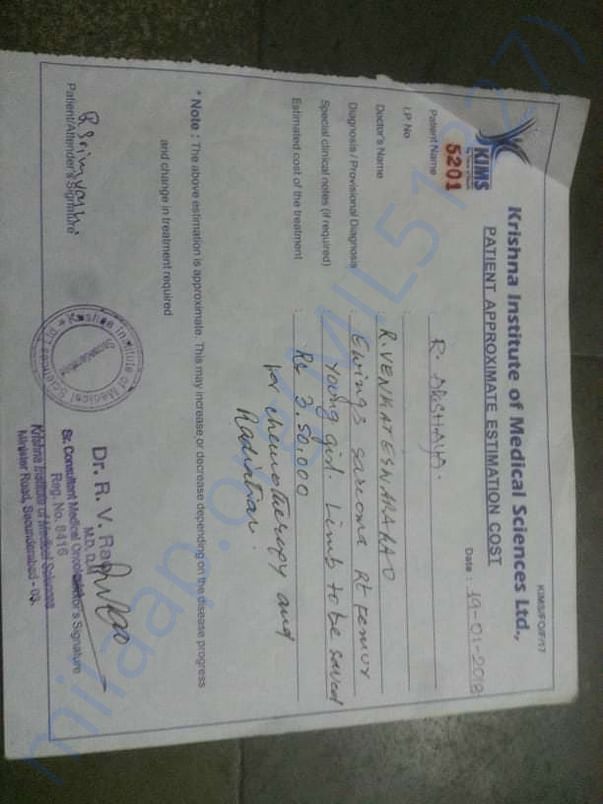 KIMS/FO/F/17
Krishna Institute of Medical Sciences Ltd.,
PATIENT APPROXIMATE ESTIMATION COST
KIMS
5201
Date : 19-01-2018
Patient Name : R. AKSHAYA.
I.P. No
Doctor's Name : R. VENKATESWARARAO
Diagnosis / Provisional Diagnosis : Ewings sarcoma Rt femur
Special clinical notes (if required) : Young girl. Limb to be saved
Estimated cost of the treatment : Rs 3,50,000
for chemotherapy and
Radiation.
* Note : The above estimation is approximate. This may increase or decrease depending on the disease progress
and change in treatment required
Patient/Attender's Signature
Krishna Institute of Medical Sciences Ltd.
Secunderabad
Dr. R. V. Ra
M.D. D.M
Sr. Consultant Medical Oncologist
Doctor's Signature
Reg. No. 8416
Krishna Institute of Medical Sciences
Minister Road, Secunderabad - 03.
milaap.org